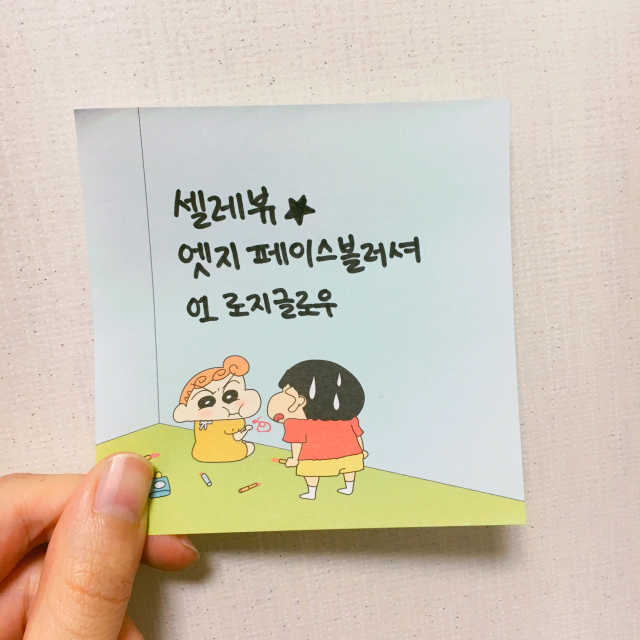 셀레뷰★
엣지 페이스블러셔
01 로지글로우